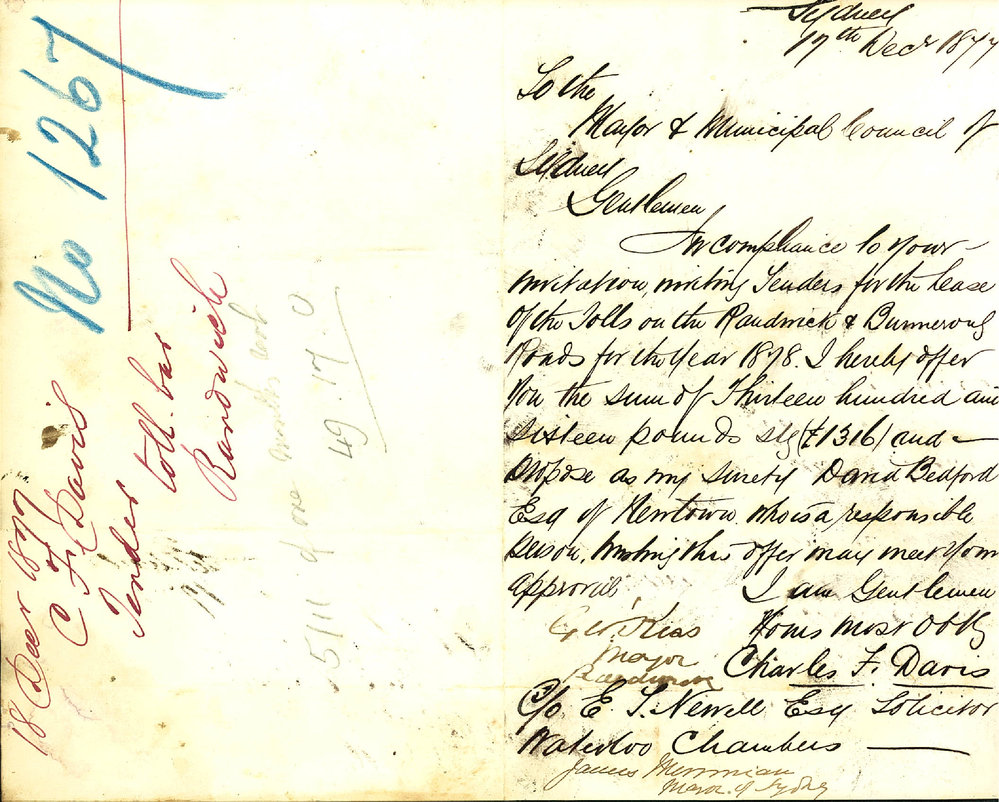 No 1267
18 Decr 1877
C F Davis
Tender
toll bar
Randwick
5/11 of one months
49.17.0
Sydney
17th Decr 1877
To the
Mayor & Municipal Council of
Sydney
Gentlemen
In compliance to your
invitation, inviting Tenders for the Lease
of the Tolls on the Randwick & Bunnerong
Roads for the Year 1878. I hereby offer
You the sum of Thirteen hundred and
sixteen pounds stg (£1316) and
propose as my surety David Bedford
Esq of Newtown who is a responsible
person, trusting this offer may meet your
approval
I am Gentlemen
Yours most Obly
Charles F. Davis
C/o E. T. Newell Esq Solicitor
Waterloo Chambers
Mayor
Randwick
James Merriman
Mayor of Sydney